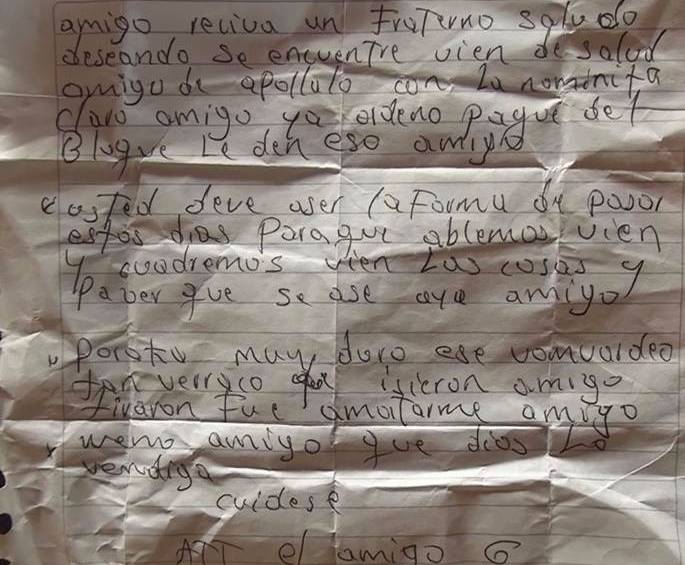 amigo reciva un fraterno saludo
deseando se encuentre vien de salud
amigo de apollulo con La nominita
claro amigo ya ordeno pague del
Bloque Le den eso amigo
usted deve aser la forma de pasar
estos dias Para que ablemos vien
y cuadremos vien Las cosas y
Paver que se ase aya amigo
Porotro muy duro ese vomvardeo
tan verraco isieron amigo
tiraron fue amatarme amigo
weno amigo que dios Lo
vendiga
cuidese
ATT el amigo G